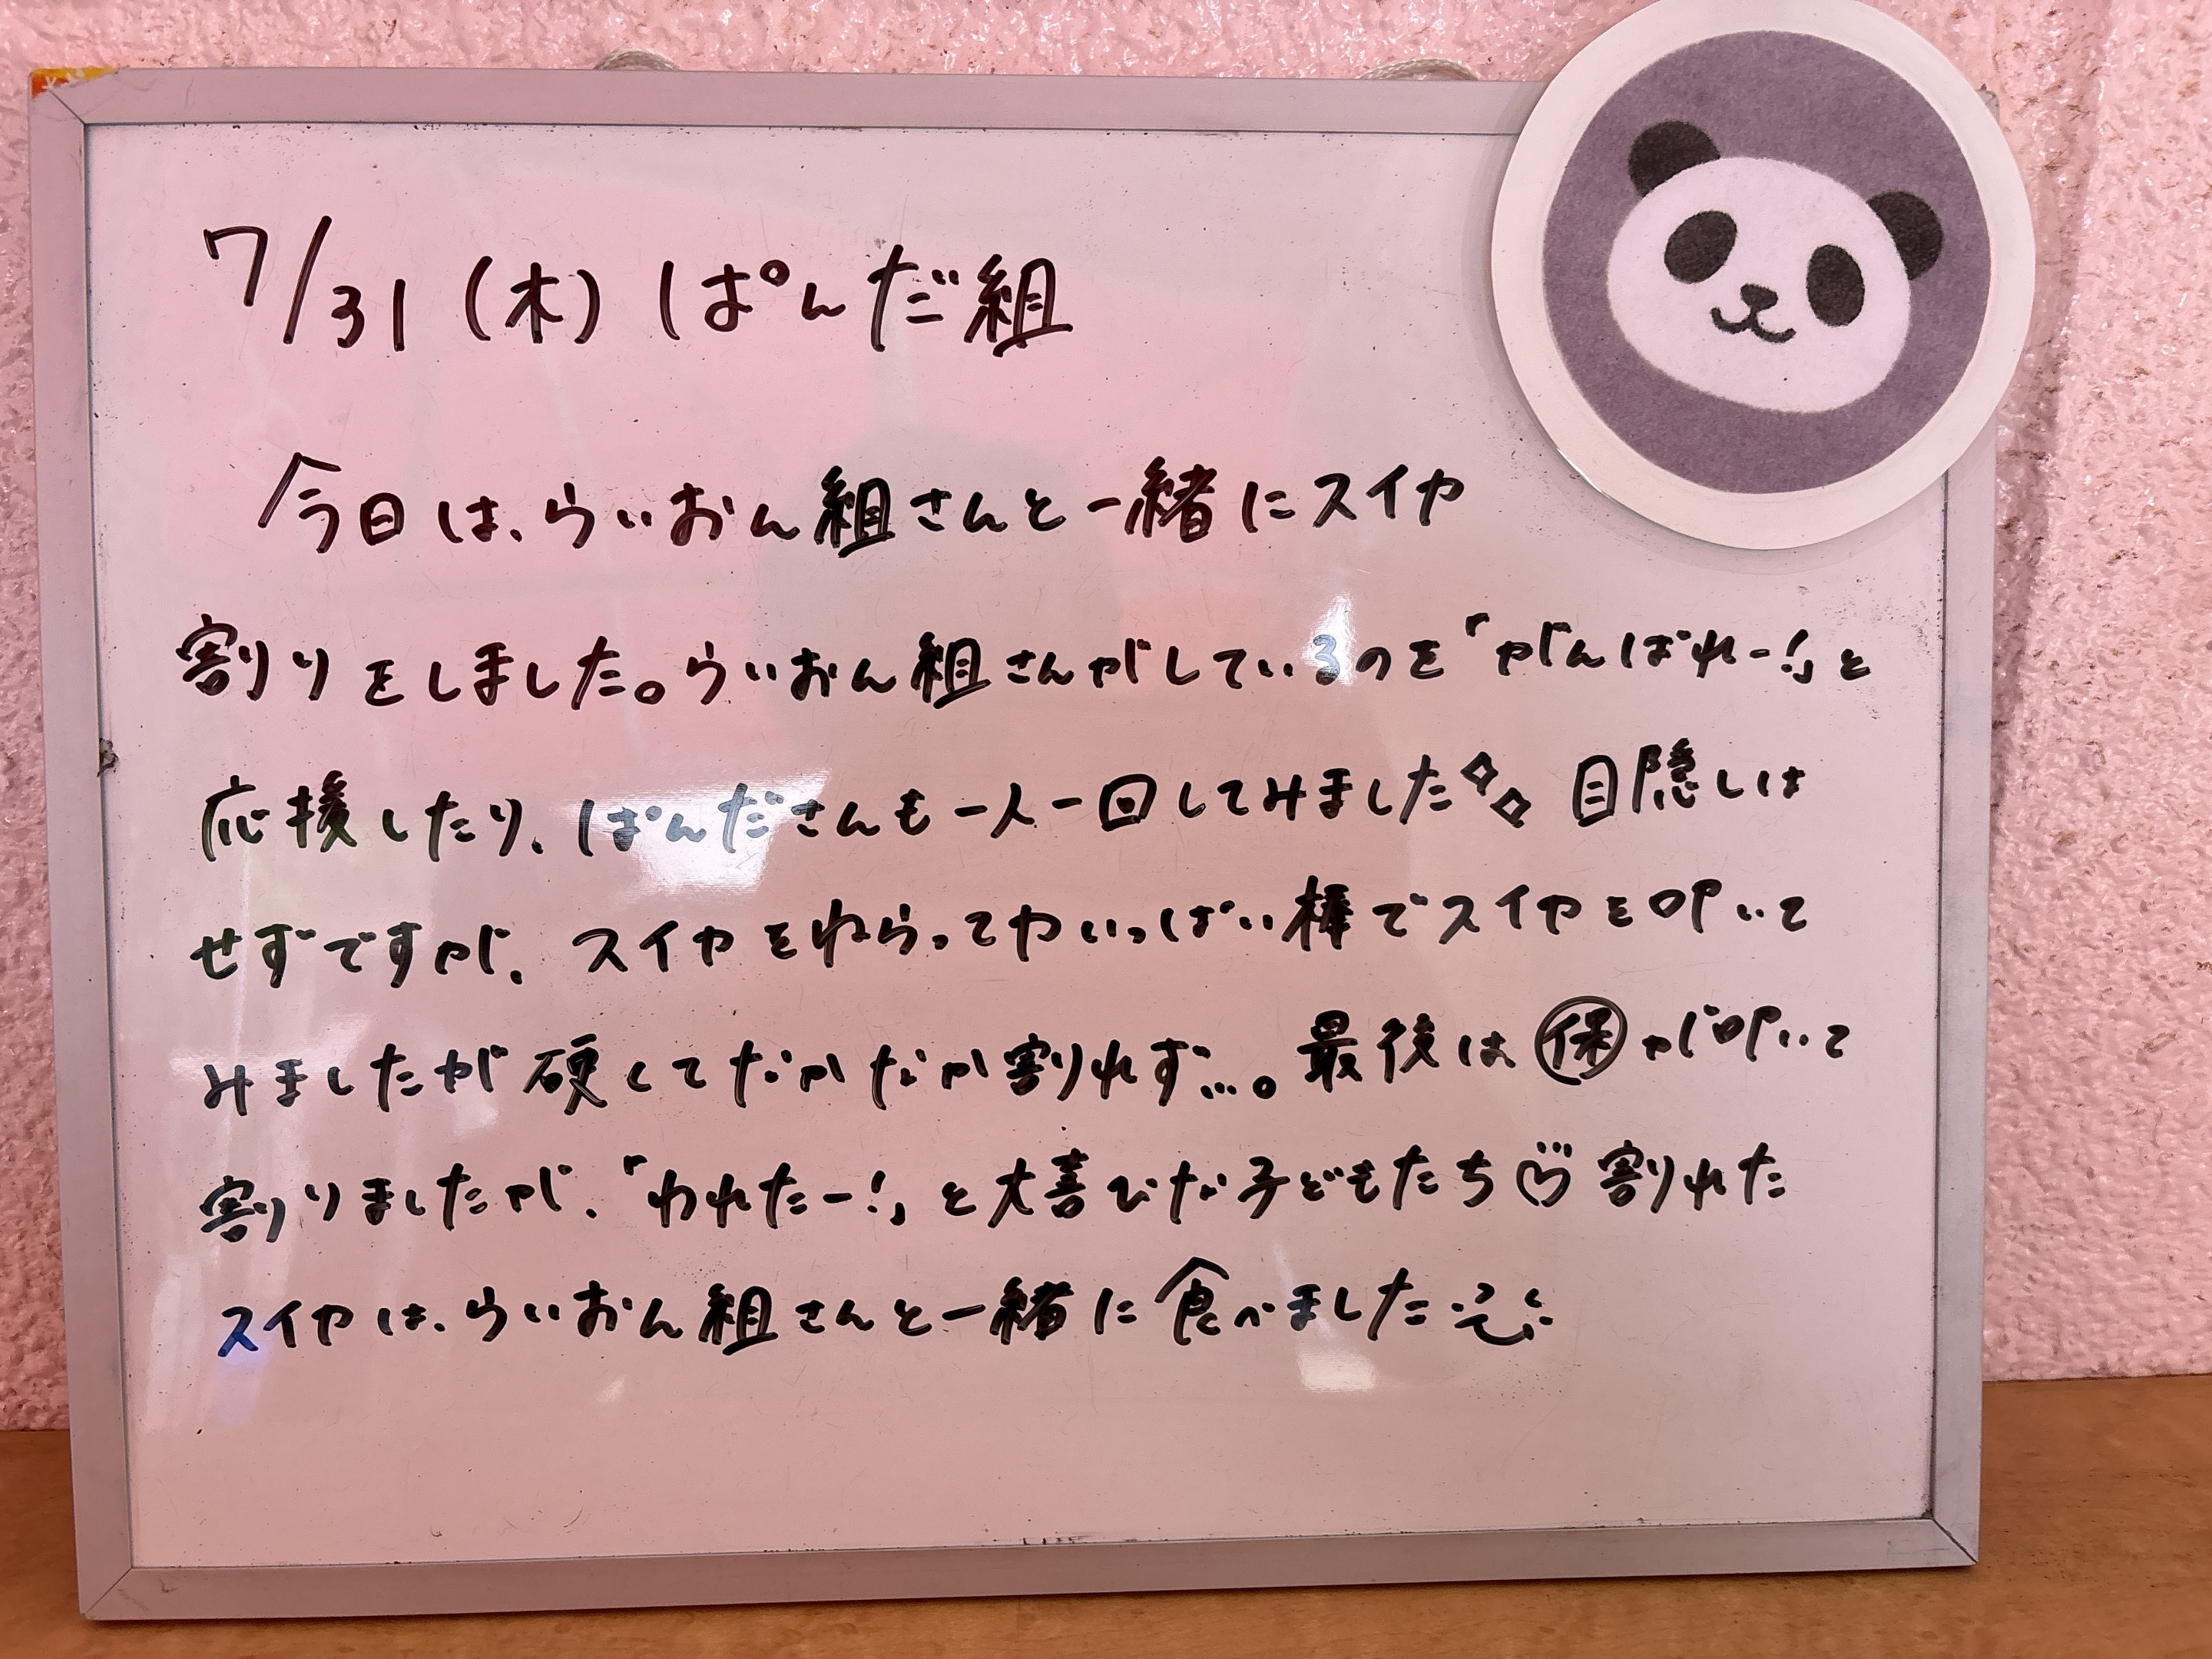 7/31（木）ぱんだ組
今日は、らいおん組さんと一緒にスイカ
割りをしました。らいおん組さんがしているのを「がんばれー!」と
応援したり、ぱんださんも一人一回してみました 目隠しは
せずですが、スイカをねらって力いっぱい棒でスイカを叩いて
みましたが硬くてなかなか割れず…。最後は㋭が叩いて
割りましたが、「われたー!」と大喜びな子どもたち♡割れた
スイカは、らいおん組さんと一緒に食べました